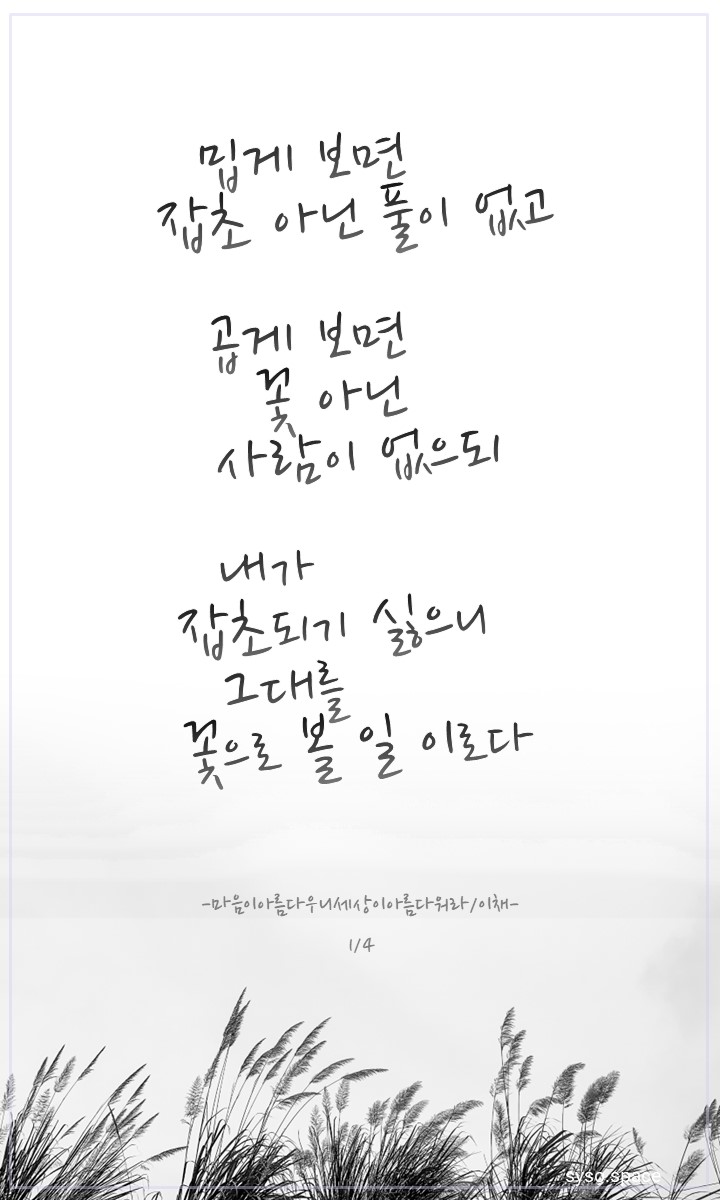 밉게 보면
잡초 아닌 풀이 없고
곱게 보면
꽃 아닌
사람이 없으되
내가
잡초되기 싫으니
그대를
꽃으로 볼 일 이로다
-마음이아름다우니세상이아름다워라/이채-
1/4
sysg.space